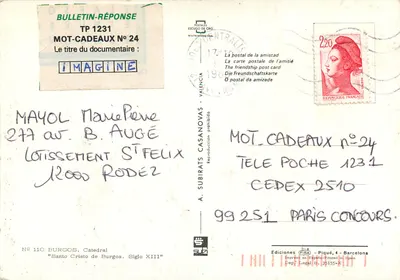 BULLETIN-RÉPONSE
TP 1231
MOT-CADEAUX Nº 24
Le titre du documentaire :
IMAGINE
MAYOL MariePierre
277 av. B. AUGÉ
LOTISSEMENT ST FELIX
12000 RODEZ
Nº 110 BURGOS. Catedral
"Santo Cristo de Burgos. Siglo XIII"
A. SUBIRATS CASANOVAS - VALENCIA
La postal de la amistad
La carte postale de l'amitié
The friendship post card
Die Freundschaftskarte
O postal da amizade
2,20
MOT-CADEAUX nº24
TELE POCHE 1231
CEDEX 2510
99251 PARIS CONCOURS.
Ediciones Piqué, 4 - Barcelona